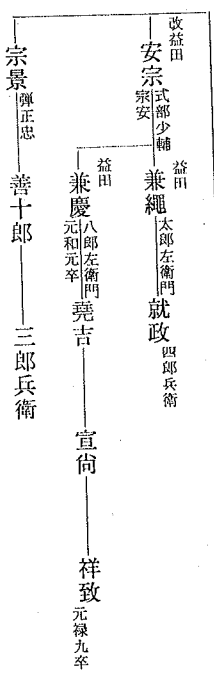 改益田
安宗
式部少輔
宗安
益田
兼繩
太郎左衛門
就政
四郎兵衛
益田
兼慶
八郎左衛門
元和元卒
堯吉
宣尙
祥致
元禄九卒
宗景
彈正忠
善十郎
三郎兵衛